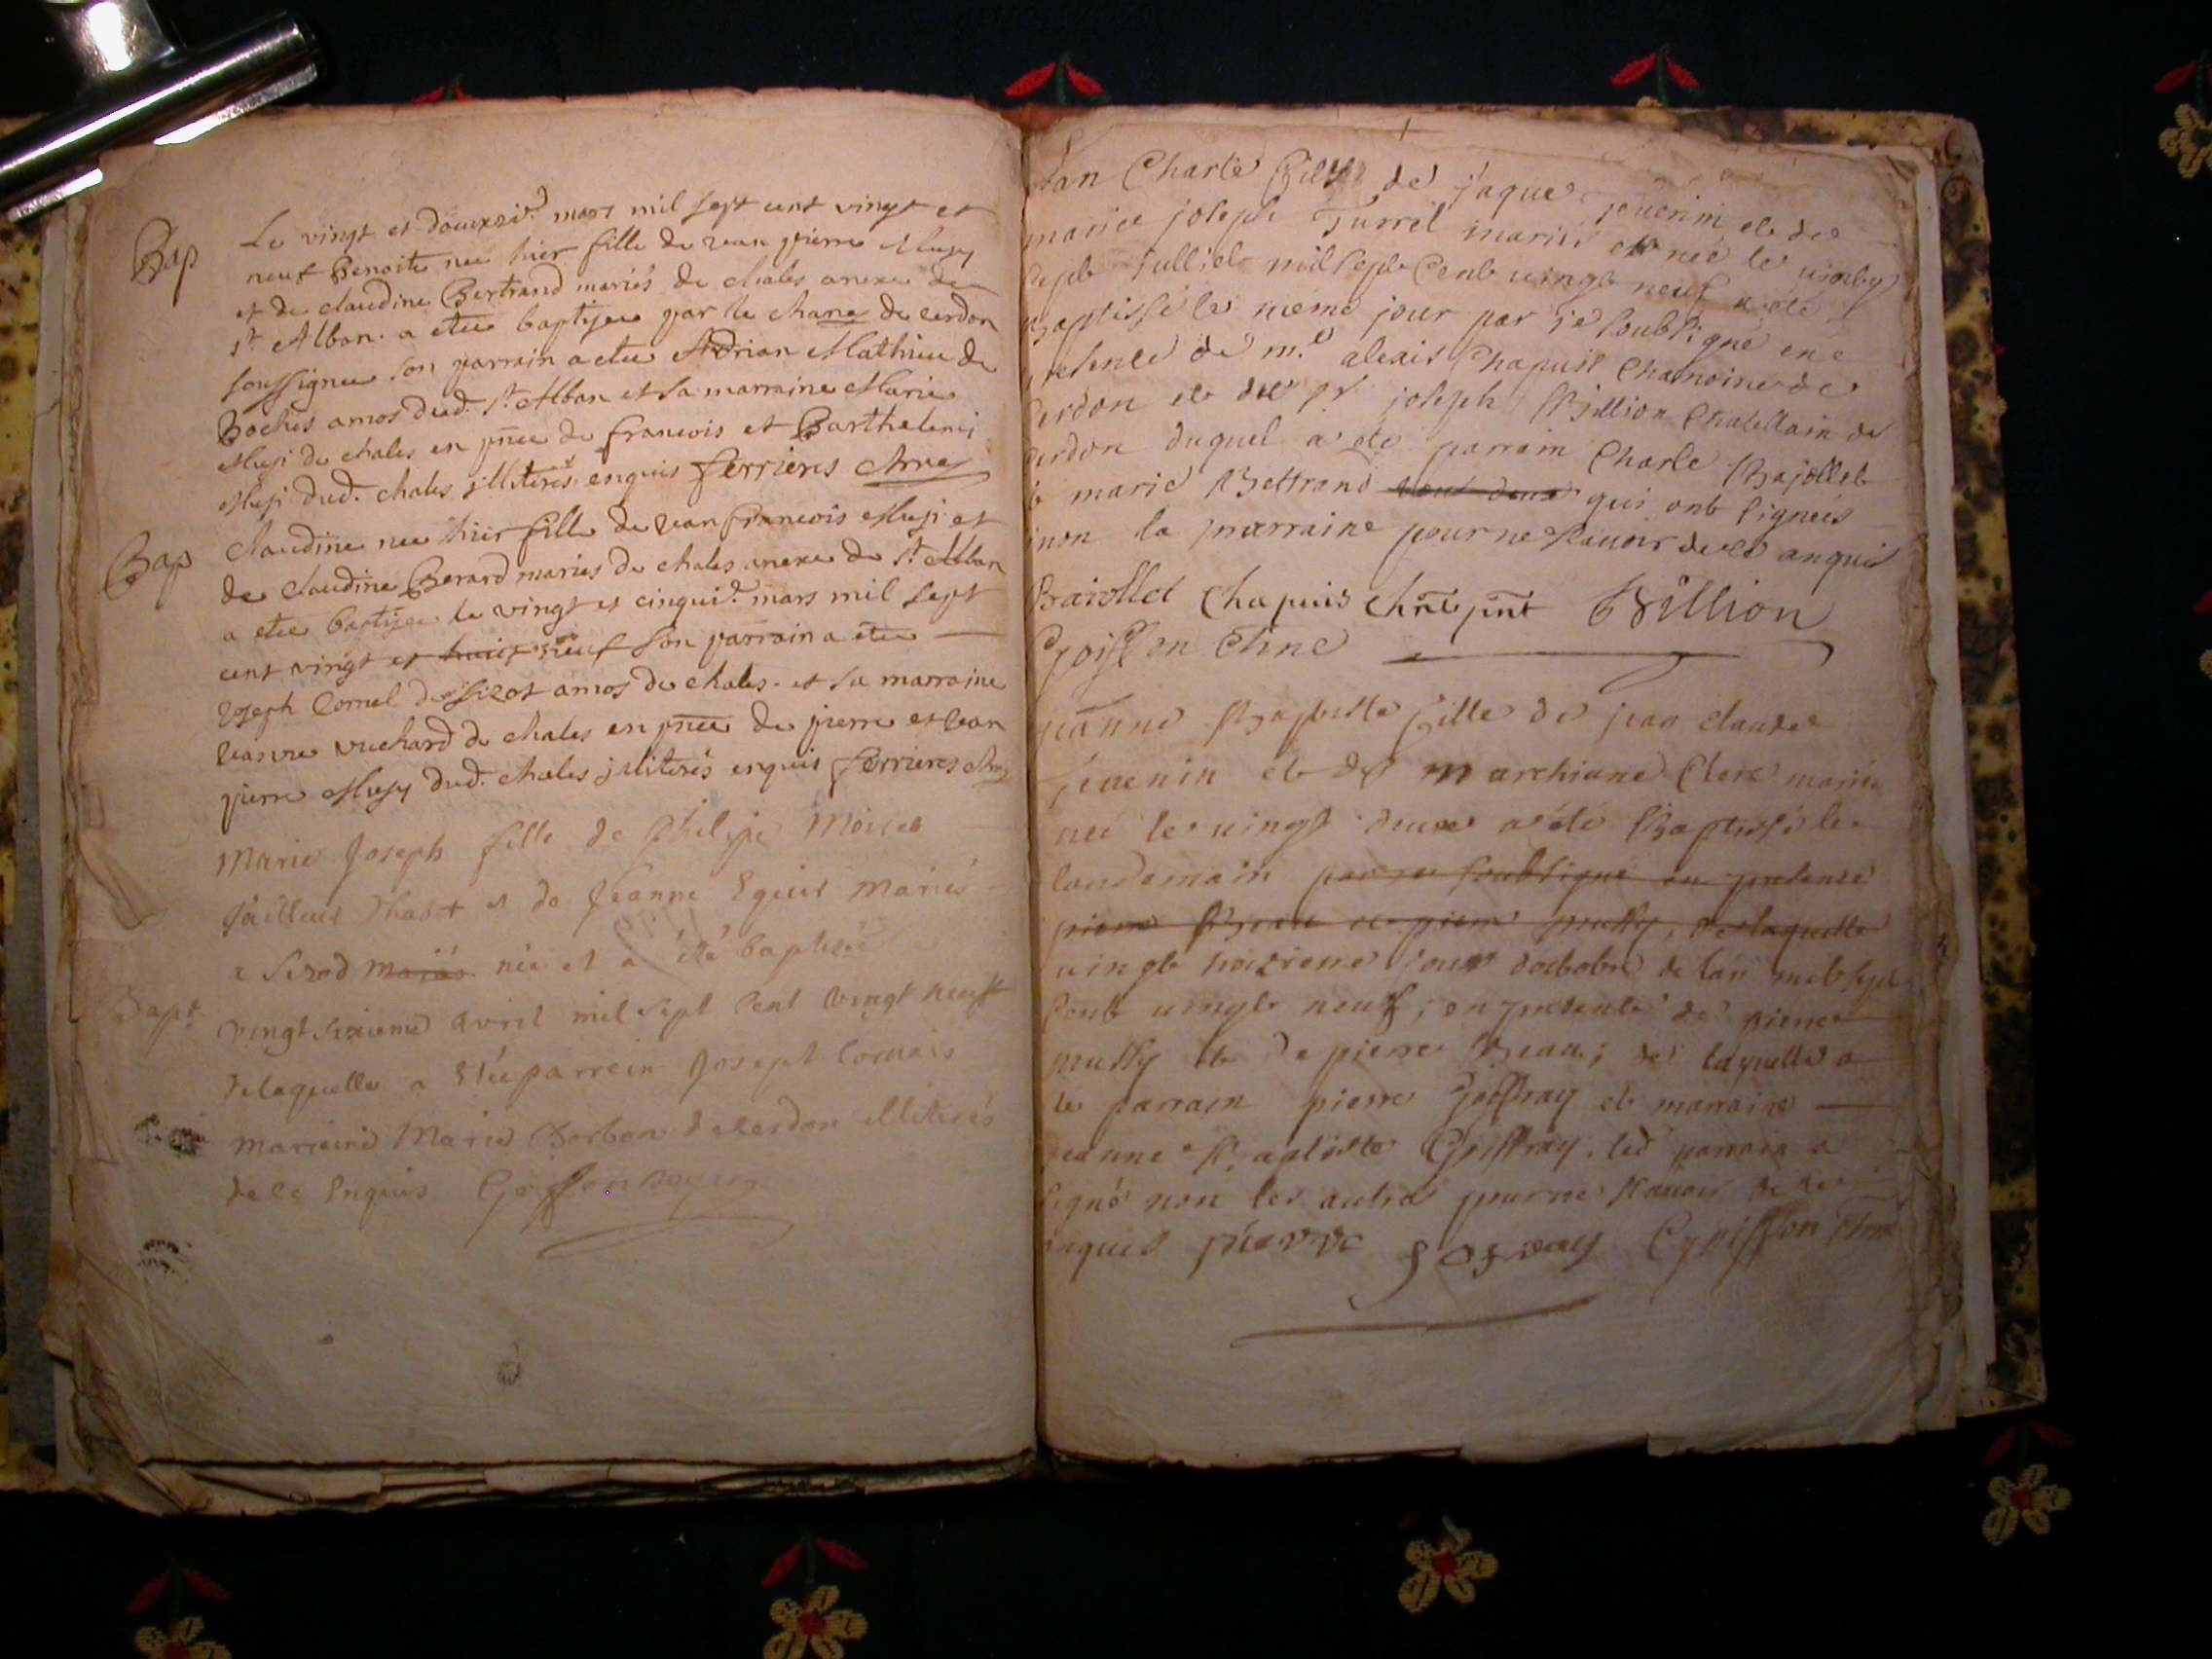 Bap
Le vingt et deuxxi.e mars mil sept cent vingt et
neuf Benoite neé hier fille de Jean pierre Musy
et de claudine Bertrand mariés de chales anexe de
st. Alban. a eteé baptiseé par le chane de cerdon
soussigneé son parrain a eteé Adrian Mathieu de
Boches amos dud. st. Alban et sa marraine Marie
Musi de chales en pnce de francois et Barthelemi
Musi dud. chales illiterés enquis ferrieres chne
Bap
claudine neé hier fille de Jean francois Musi et
de claudine Berard mariés de chales anexe de st. Alban
a eteé baptiseé le vingt et cinqui.e mars mil sept
cent vingt et huit neuf son parrain a eteé
Joseph Cornel de amos de chales. et sa marraine
Jeanne vuchard de chales en pnce de pierre et Jean
pierre Musy dud. chales jlliterés enquis ferrieres chne
Marie Joseph fille de Philipe
et de Jeanne mariés
a mariés née et a été baptisée
Bapt.
vingt sixieme avril mil sept cent vingt neuf
de laquelle a étée parrein Joseph
marreine Marie de cerdon illiterés
de ce enquis Goiffon
Jan Charle fils de jaque et de
marie joseph Turrel mariés et né le vingt
sept julliet mil sept cent vingt neuf a été
baptissé le méme jour par je soubsigné en
presence de m.e alexis Chapuis Chanoine de
Cerdon et de sr. joseph Billion Chatellain de
cerdon duquel a eté parrain Charle Bajollet
et marie Bertrand tout deux qui ont signeés
non la marraine pour ne scavoir de ce anquis
Baiollet Chapuis chne pnt Billion
Goiffon chne
jeanne Baptiste fille de jean claude
jeuenin et de marchiane Clerc mariés
neé le vingt deux a été Baptissé le
landemain par je soubsigné en presence
pierre et pierre mussy, de laquelle
vingt jour doctobre de lan mil sept
Cent vingt neuf, en presence de pierre
mussy et de pierre; de laquelle a
été parrain pierre Joffray et marraine
jeanne Baptiste Guffray. led parrain a
signé non les autre pour ne scavoir de ce
enquis pierre jofray Goiffon chne